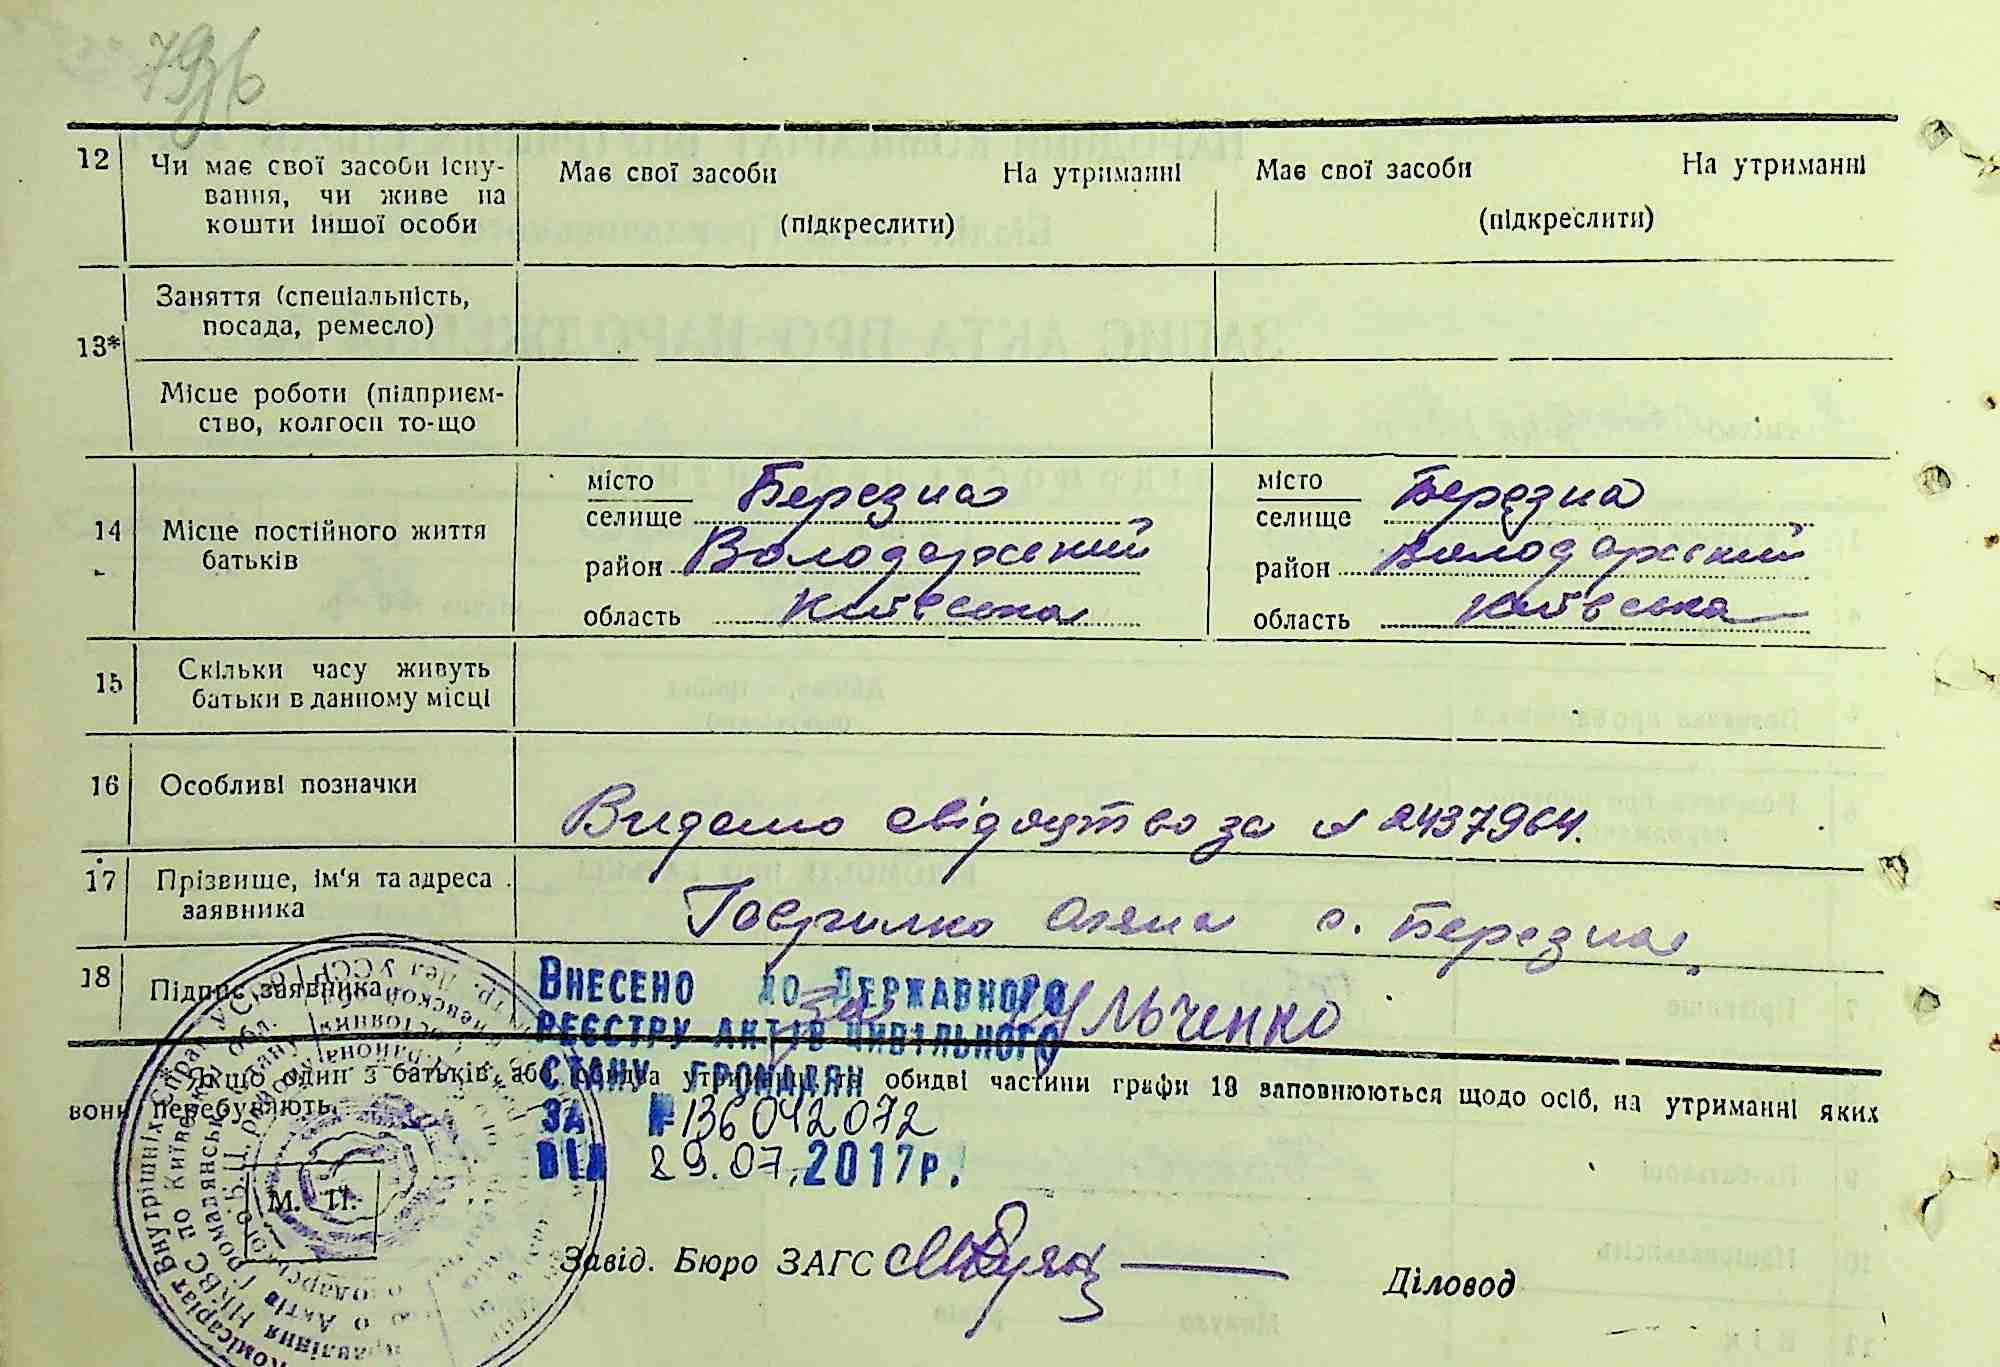 12 Чи має свої засоби існу-
вання, чи живе на
кошти іншої особи
Має свої засоби На утриманні
(підкреслити)
Має свої засоби На утриманні
(підкреслити)
13* Заняття (спеціальність,
посада, ремесло)
Місце роботи (підприєм-
ство, колгосп то-що
14 Місце постійного життя
батьків
місто
селище Березна
район Володарський
область Київська
місто
селище Березна
район Володарський
область Київська
15 Скільки часу живуть
батьки в данному місці
16 Особливі позначки
Видано свідоцтво за № 2437964.
17 Прізвище, ім'я та адреса
заявника
Гаврилко с. Березна,
18 Підпис заявника
Внесено до Державного
реєстру актів цивільного
стану громадян
за № 136042072
від 29.07.2017р.
* Якщо один з батьків, або обидва утриманці, то обидві частини графи 13 заповнюються щодо осіб, на утриманні яких
вони перебувають.
М. П.
Завід. Бюро ЗАГС
Діловод